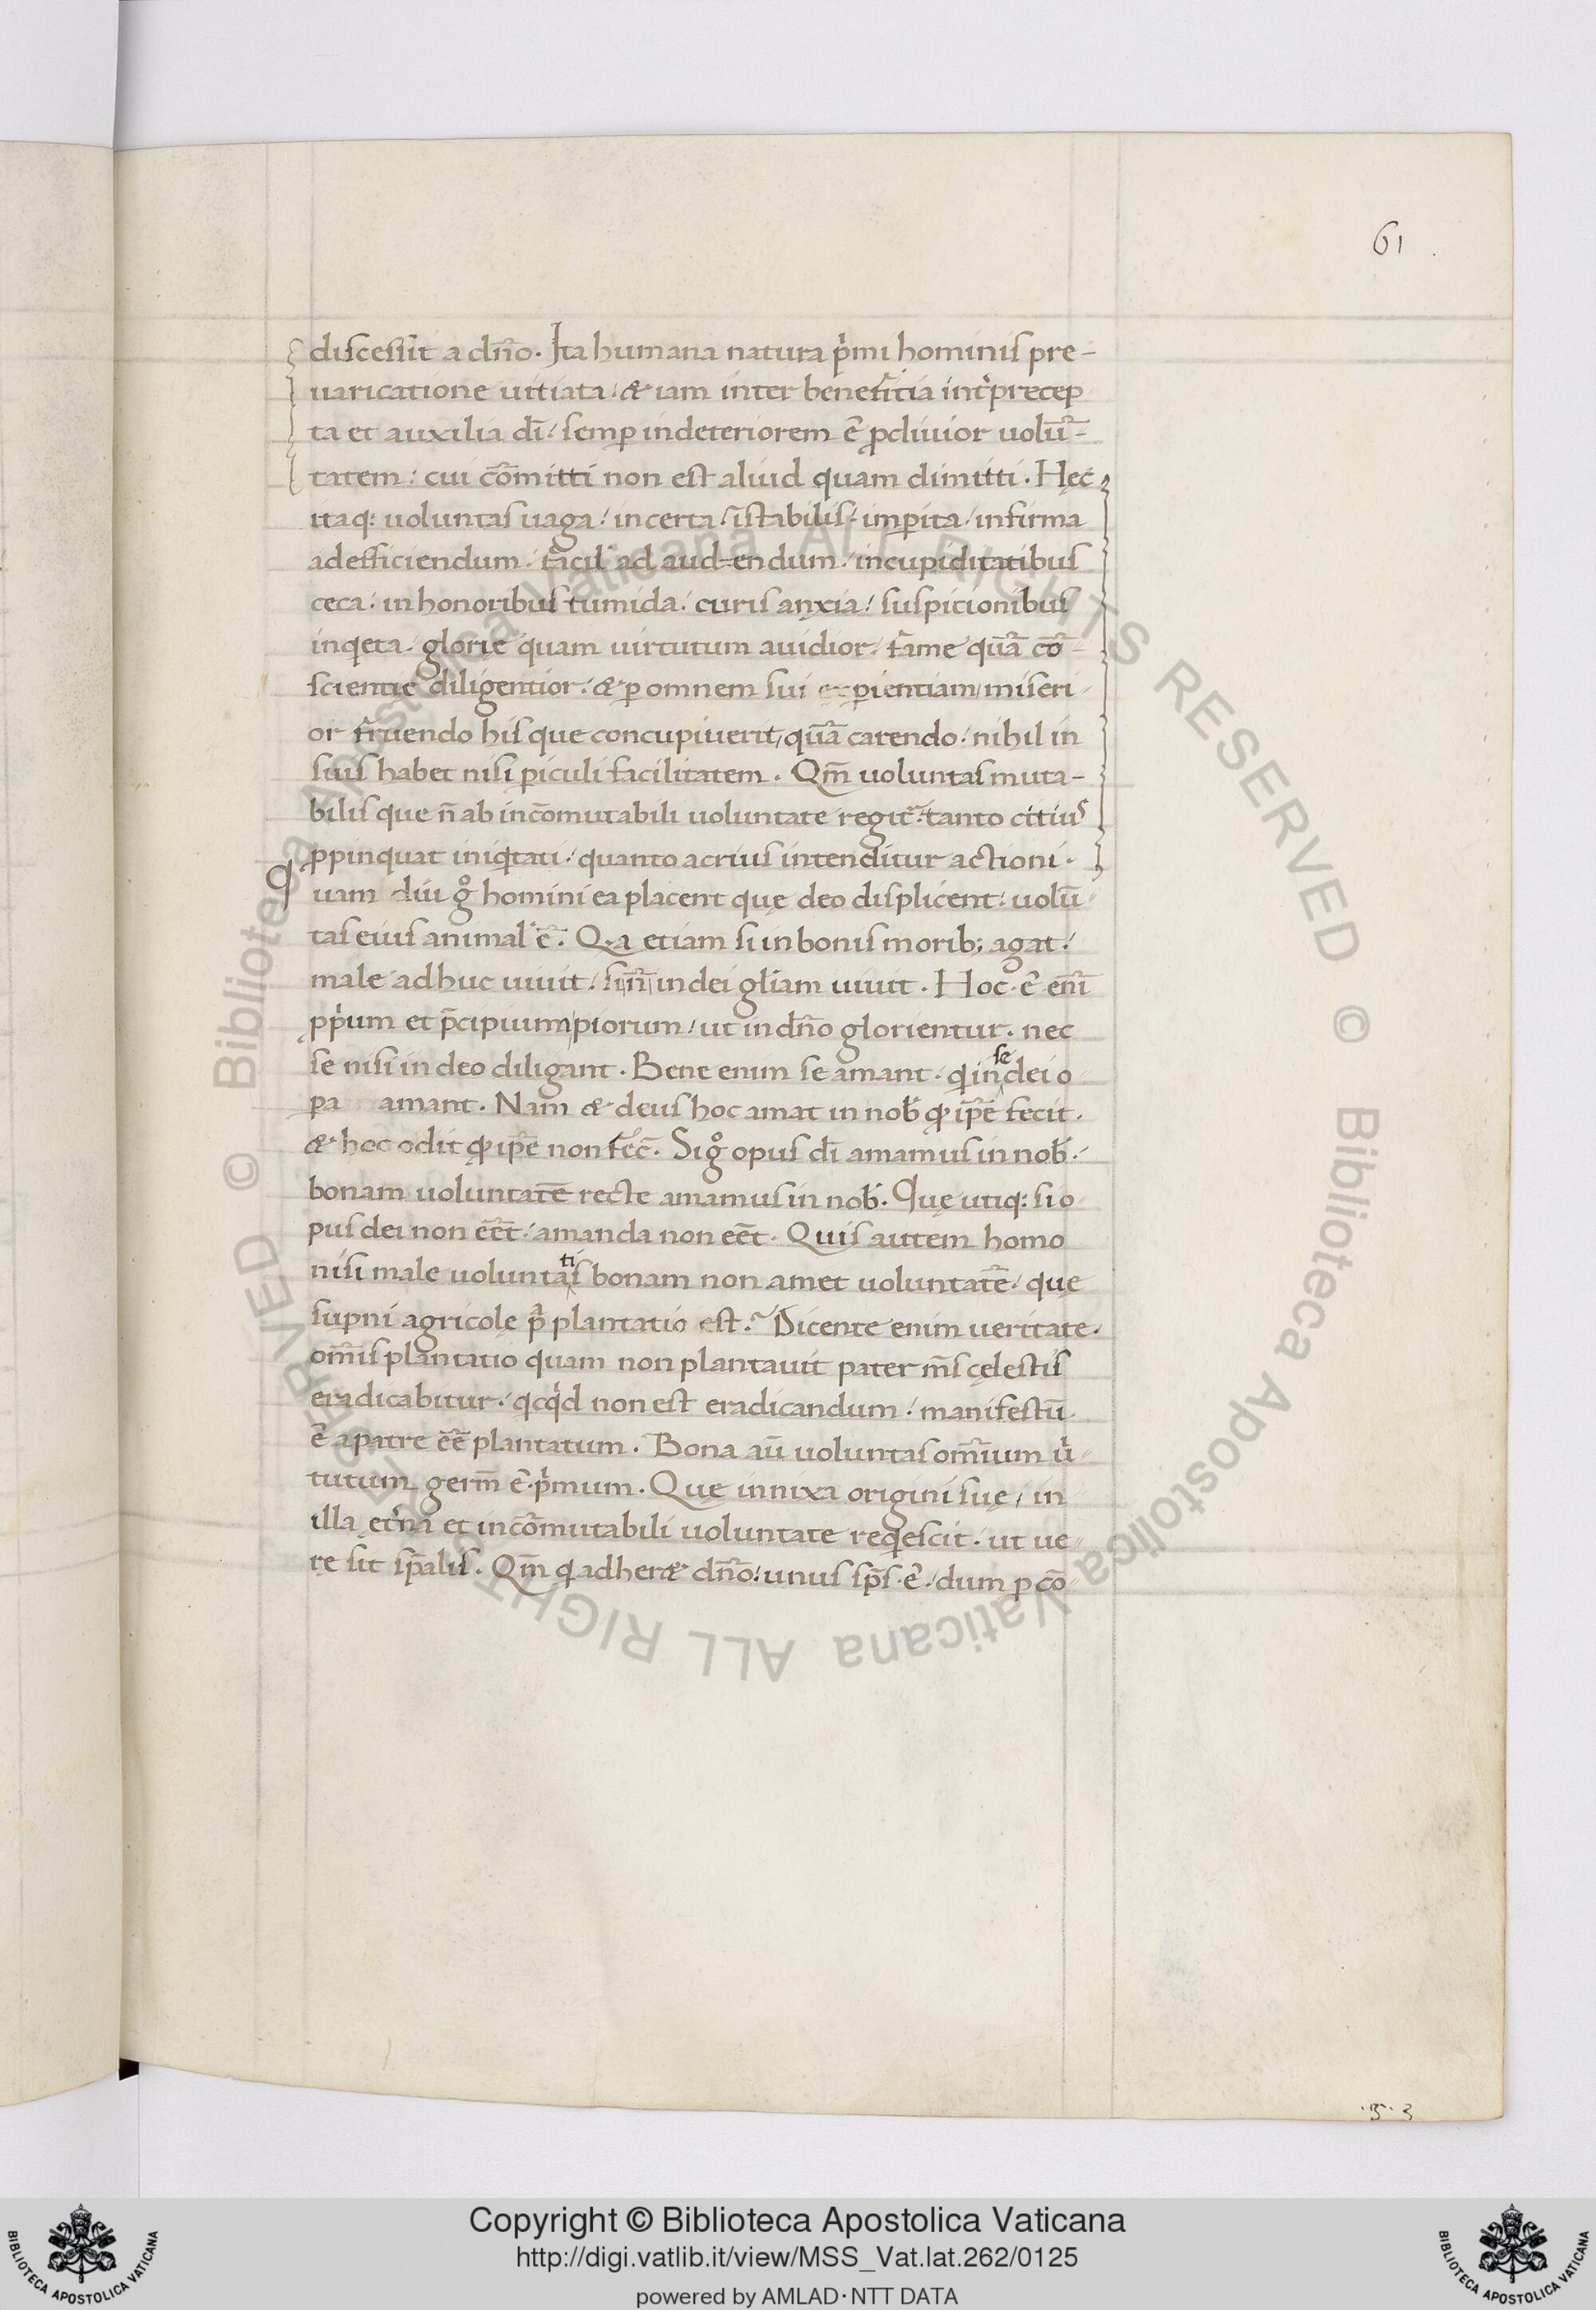 61
discessit a dn̄o. Ita humana natura p̍mi hominis pre-
uaricatione uitiata / & iam inter beneficia int̍ precep
ta et auxilia dī / semꝑ in deteriorem ē ꝓcliuior uolū-
tatem / cui cōmitti non est aliud quam dimitti. Hęc
itaq: uoluntas uaga / incerta / īstabilis / imꝑita / infirma
ad efficiendum / facil' ad aud=endum / in cupiditatibus
ceca / in honoribus tumida / curis anxia / suspicionibus
inq̍eta / glorię quam uirtutum auidior / fame quā cō-
scientię diligentior / & ꝑ omnem sui exꝑientiam / miseri
or fruendo his que concupiuerit, quā carendo / nihil in
suis habet nisi ꝑiculi facilitatem. Qm̄ uoluntas muta-
bilis que n̄ ab incōmutabili uoluntate regit̃ / tanto citius
ꝓpinquat iniq̍tati / quanto acrius intenditur actioni.
Quam diu g̊ homini ea placent quę deo displicent / uolū
tas eius animal' ē. Q̍a etiam si in bonis morib; agat /
male adhuc uiuit / si n̄ in dei gl̄iam uiuit. Hoc ē enī
ꝓp̍um et p̄cipuum piorum / ut in dn̄o glorientur. nec
se nisi in deo diligant. Bene enim se amant. q̍ in se dei o
pa amant. Nam & deus hoc amat in nob̄ ꝙ ip̄e fecit.
& hoc odit ꝙ ip̄e non fec̄. Si g̊ opus dī amamus in nob̄ /
bonam uoluntatē recte amamus in nob̄. Quę utiq: si o
pus dei non eēt / amanda non eēt. Quis autem homo
nisi male uoluntatis bonam non amet uoluntatē / quę
suꝑni agricolę p̍ plantatio est? Dicente enim ueritate.
om̄is plantatio quam non plantauit pater m̄s cęlestis
eradicabitur. q̍cq̍d non est eradicandum / manifestū
ē a patre eē plantatum. Bona aū uoluntas om̄ium u̍
tutum germ̄ ē p̍mum. Quę innixa origini suę / in
illa ęt̍na et incōmutabili uoluntate req̍escit. ut ue
re sit sp̄alis. Qm̄ q̍ adher& dn̄o / unus sp̄s ē / dum ꝑ cō
.5.3
Copyright © Biblioteca Apostolica Vaticana
http://digi.vatlib.it/view/MSS_Vat.lat.262/0125
powered by AMLAD·NTT DATA
BIBLIOTECA APOSTOLICA VATICANA
BIBLIOTECA APOSTOLICA VATICANA
© Biblioteca Apostolica Vaticana ALL RIGHTS RESERVED © Biblioteca Apostolica Vaticana ALL RIGHTS RESERVED